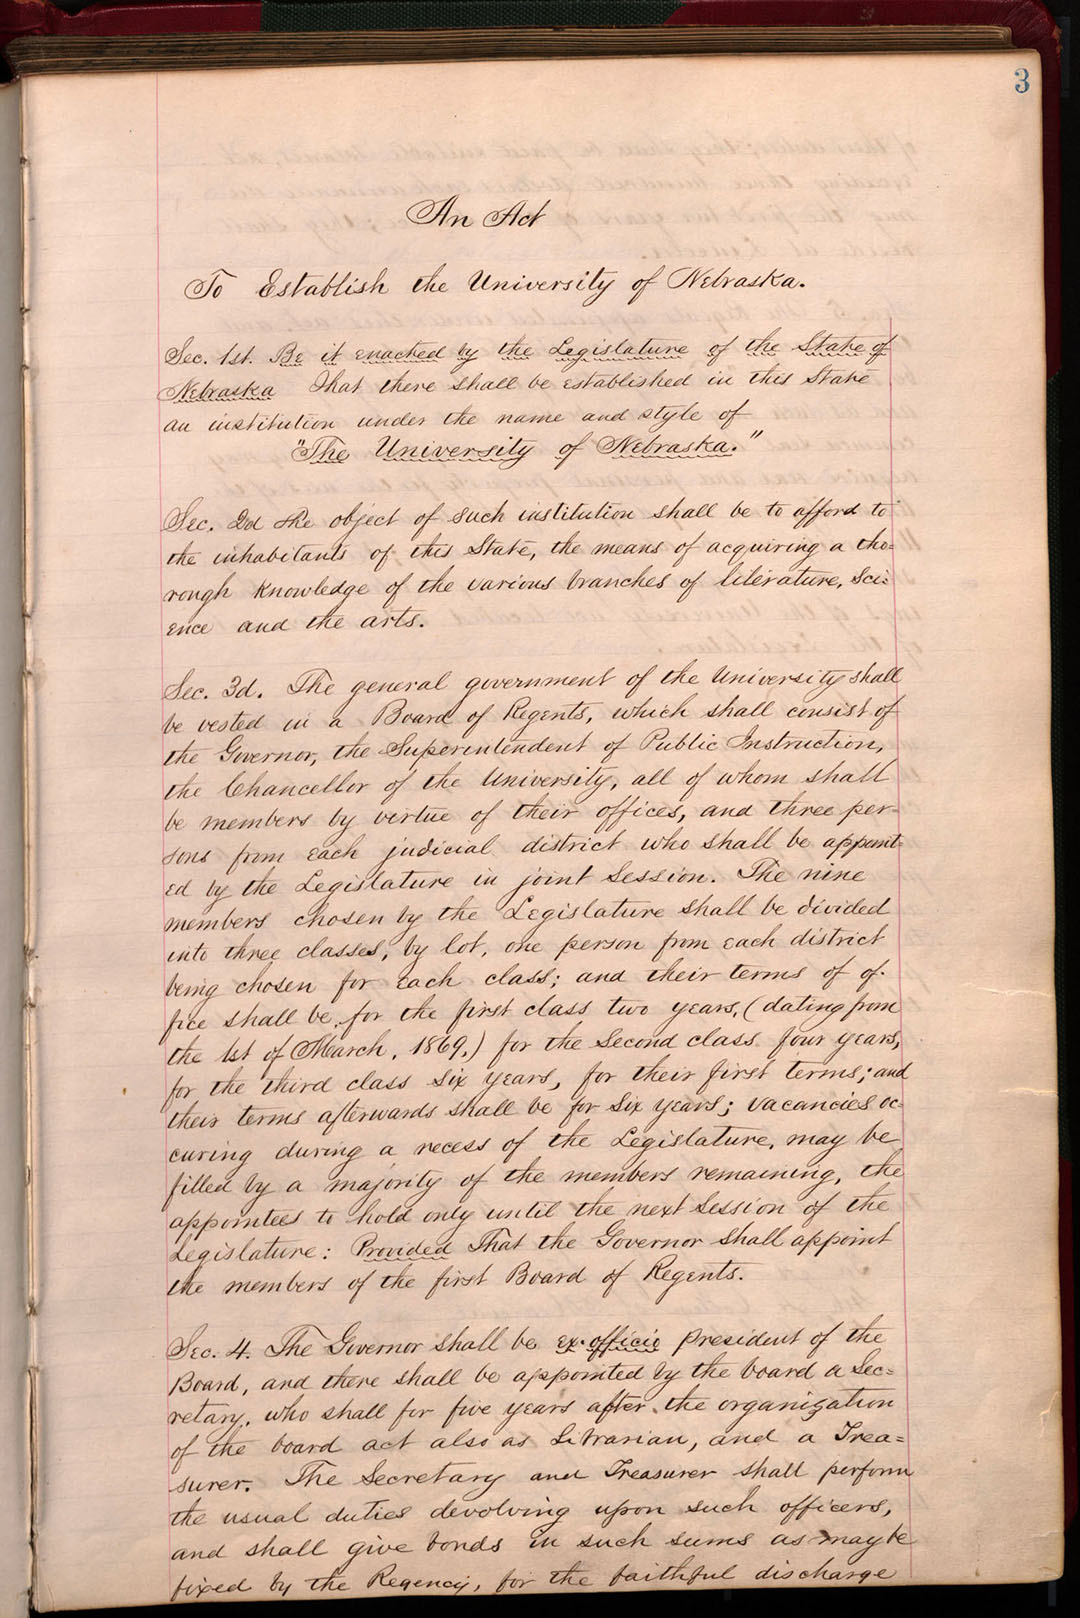 3
An Act
To Establish the University of Nebraska.
Sec. 1st. Be it enacted by the Legislature of the State of
Nebraska That there shall be established in this State
an institution under the name and style of
"The University of Nebraska."
Sec. 2d The object of such institution shall be to afford to
the inhabitants of this State, the means of acquiring a tho=
rough knowledge of the various branches of literature, Sci=
ence and the arts.
Sec. 3d. The general government of the University shall
be vested in a Board of Regents, which shall consist of
the Governor, the Superintendent of Public Instruction,
the Chancellor of the University, all of whom shall
be members by virtue of their offices, and three per=
sons from each judicial district who shall be appoint=
ed by the Legislature in joint Session. The nine
members chosen by the Legislature shall be divided
into three classes, by lot, one person from each district
being chosen for each class; and their terms of of-
fice shall be, for the first class two years, (dating from
the 1st of March, 1869,) for the Second class four years,
for the third class six years, for their first terms; and
their terms afterwards shall be for Six years; vacancies oc=
curing during a recess of the Legislature, may be
filled by a majority of the members remaining, the
appointees to hold only until the next Session of the
Legislature: Provided That the Governor shall appoint
the members of the first Board of Regents.
Sec. 4. The Governor shall be ex-officio President of the
Board, and there shall be appointed by the board a Sec=
retary, who shall for five years after the organization
of the board act also as Librarian, and a Trea=
surer. The Secretary and Treasurer shall perform
the usual duties devolving upon such officers,
and shall give bonds in such sums as may be
fixed by the Regency, for the faithful discharge